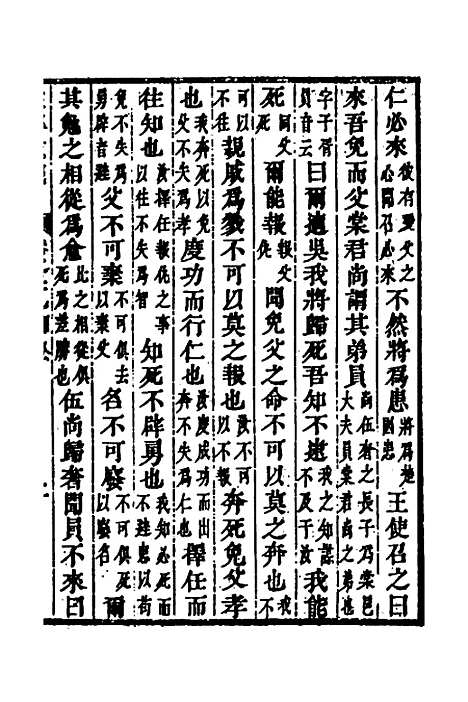 仁必來彼有愛父之心聞召必來不然將爲患將爲楚國患王使召之曰
來吾免而父棠君尚謂其弟員尚伍奢之長子乃棠邑大夫員棠君尚之弟也
字子胥員音云曰爾適吳我將歸死吾知不逮我之知謀不及于汝我能
死同父死爾能報報父仇聞免父之命不可以莫之奔也我不
可以不往親戚爲戮不可以莫之報也汝不可以不報奔死免父孝
也我奔死以免父不失爲孝度功而行仁也汝度成功而出奔不失爲仁也擇任而
往知也汝擇任報仇之事以往不失爲智知死不辟勇也我知必死而不逃患以苟
免不失爲勇辟音避父不可棄不可俱去以棄父名不可廢不可俱死以廢名爾
其勉之相從爲愈比之相從俱死爲差勝也伍尚歸奢聞員不來曰